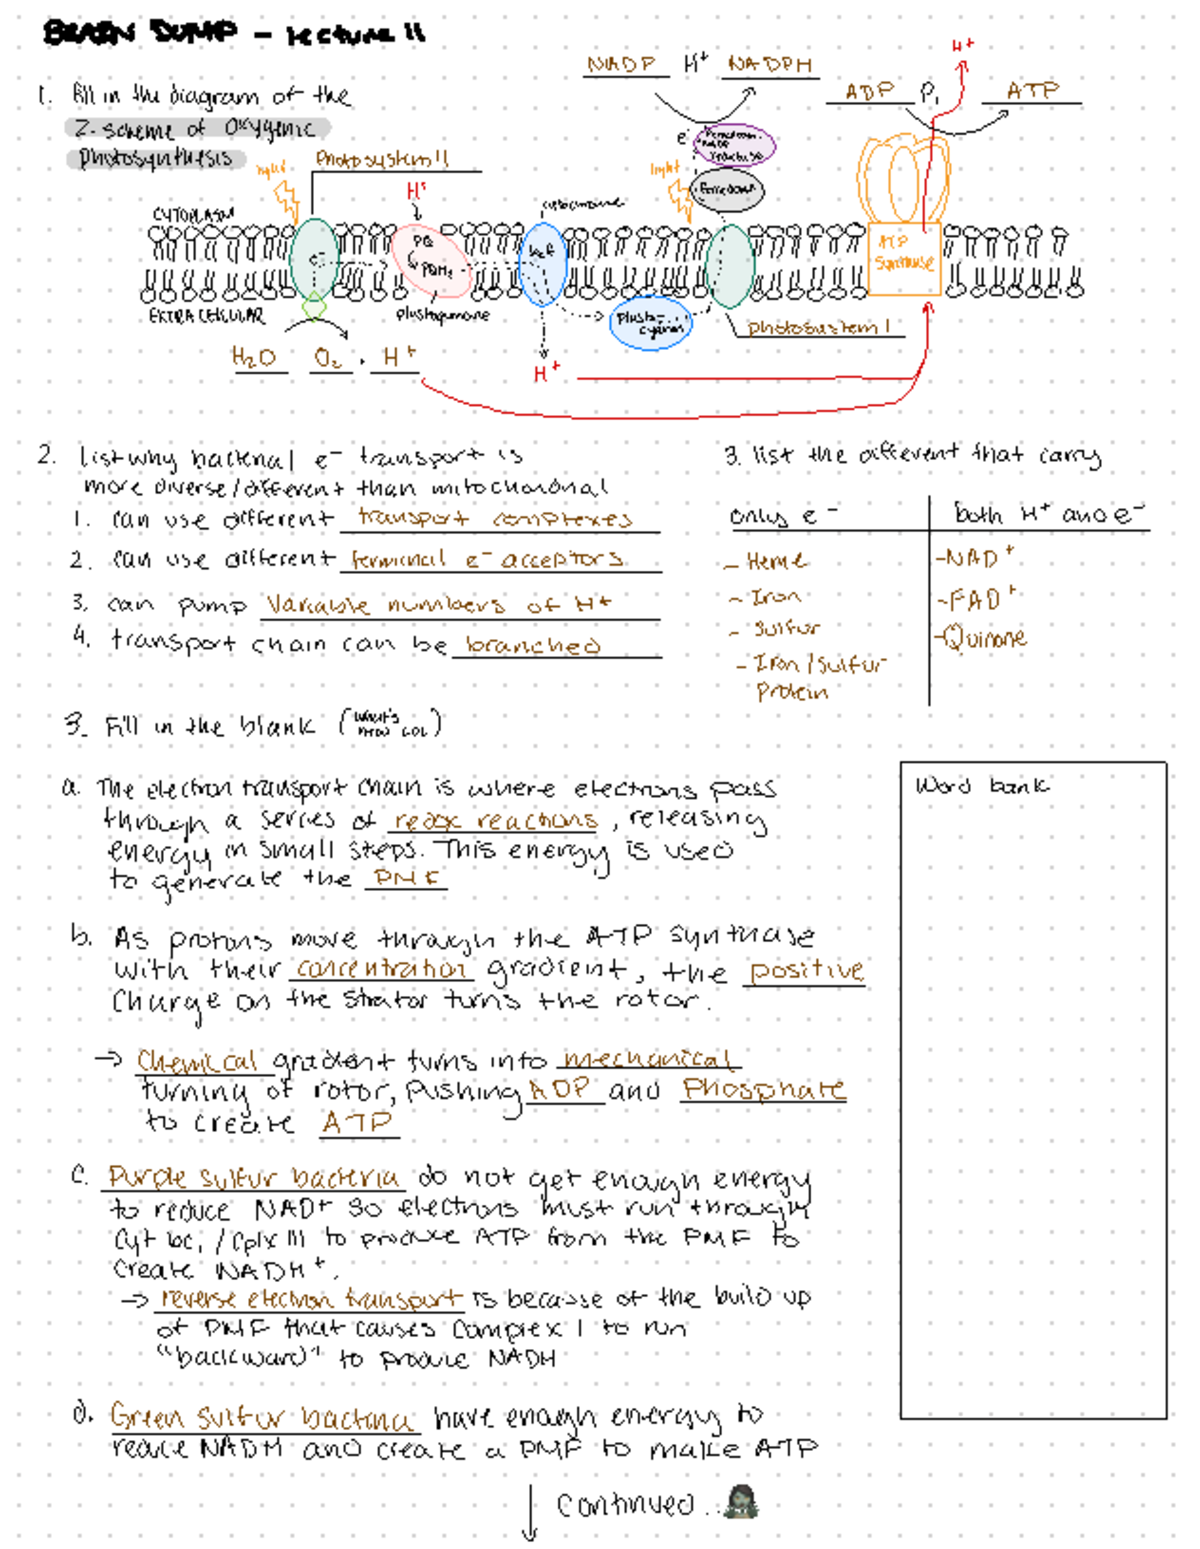 BRAIN DUMP - lecture 11
1. fill in the diagram of the
Z-scheme of Oxygenic
photosynthesis
NADP H+ NADPH
ADP Pi ATP
H+
e-
Ferredoxin
light
Photosystem II
H+
light
CYTOPLASM
PQ
PQH2
e-
ATP
synthase
EXTRACELLULAR
plastoquinone
Plasto-
cyanin
photosystem I
H2O O2 + H+
H+
2. list why bacterial e- transport is
more diverse/different than mitochondrial
1. can use different transport complexes
2. can use different terminal e- acceptors
3. can pump variable numbers of H+
4. transport chain can be branched
3. list the different that carry
only e- both H+ and e-
- Heme
- Iron
- Sulfur
- Iron/Sulfur
Protein
-NAD+
-FAD+
-Quinone
3. Fill in the blank (what's
new LOL)
a. The electron transport chain is where electrons pass
through a series of redox reactions, releasing
energy in small steps. This energy is used
to generate the PMF
b. As protons move through the ATP synthase
with their concentration gradient, the positive
charge on the strator turns the rotor.
→ Chemical gradient turns into mechanical
turning of rotor, pushing ADP and Phosphate
to create ATP
c. Purple sulfur bacteria do not get enough energy
to reduce NAD+ so electrons must run through
Cyt bc1/cplx III to produce ATP from the PMF to
create NADH+.
→ reverse electron transport is because of the build up
of PMF that causes Complex I to run
"backward" to produce NADH
d. Green sulfur bacteria have enough energy to
reduce NADH and create a PMF to make ATP
Word bank
continued...